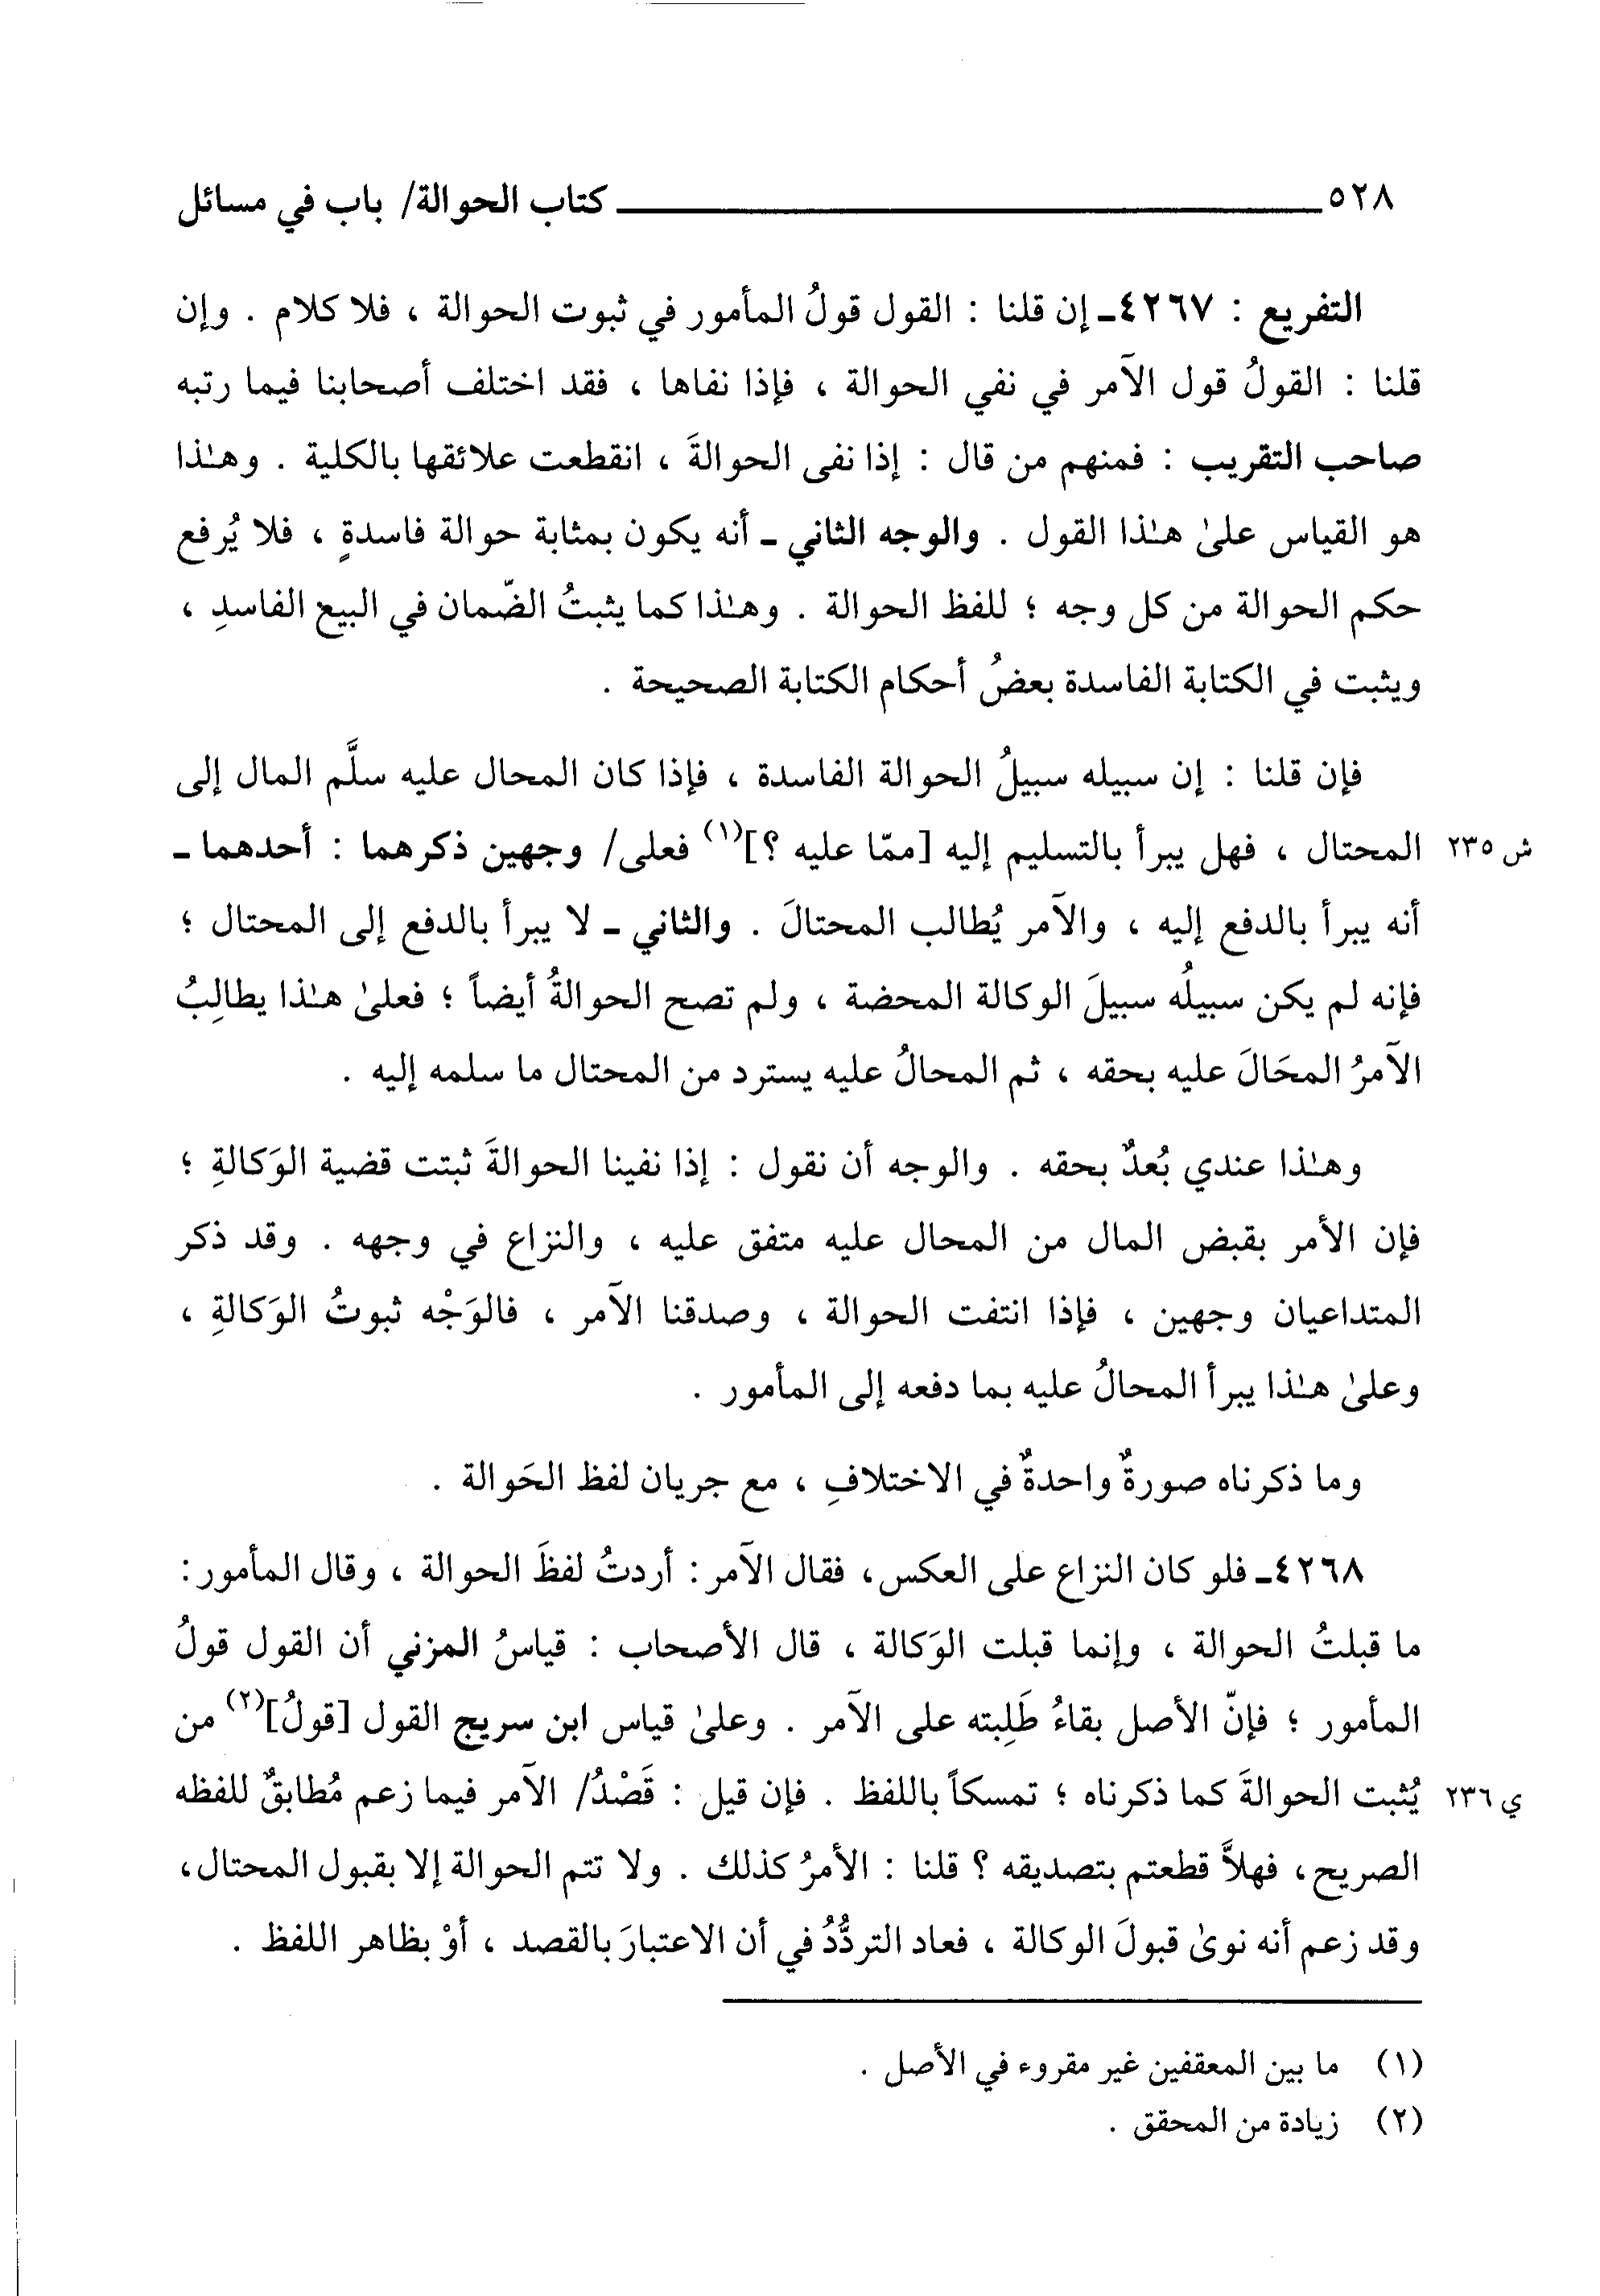 ٥٢٨ كتاب الحوالة/ باب في مسائل
التفريع : ٤٢٦٧ـ إن قلنا : القول قولُ المأمور في ثبوت الحوالة ، فلا كلام . وإن
قلنا : القولُ قول الآمر في نفي الحوالة ، فإذا نفاها ، فقد اختلف أصحابنا فيما رتبه
صاحب التقريب : فمنهم من قال : إذا نفى الحوالةَ ، انقطعت علائقها بالكلية . وهـٰذا
هو القياس علىٰ هـٰذا القول . والوجه الثاني ـ أنه يكون بمثابة حوالة فاسدةٍ ، فلا يُرفع
حكم الحوالة من كل وجه ؛ للفظ الحوالة . وهـٰذا كما يثبتُ الضّمان في البيع الفاسدِ ،
ويثبت في الكتابة الفاسدة بعضُ أحكام الكتابة الصحيحة .
فإن قلنا : إن سبيله سبيلُ الحوالة الفاسدة ، فإذا كان المحال عليه سلَّم المال إلى
ش ٢٣٥ المحتال ، فهل يبرأ بالتسليم إليه [ممّا عليه ؟](١) فعلى/ وجهين ذكرهما : أحدهما ـ
أنه يبرأ بالدفع إليه ، والآمر يُطالب المحتالَ . والثاني ـ لا يبرأ بالدفع إلى المحتال ؛
فإنه لم يكن سبيلُه سبيلَ الوكالة المحضة ، ولم تصح الحوالةُ أيضاً ؛ فعلىٰ هـٰذا يطالِبُ
الآمرُ المحَالَ عليه بحقه ، ثم المحالُ عليه يسترد من المحتال ما سلمه إليه .
وهـٰذا عندي بُعدٌ بحقه . والوجه أن نقول : إذا نفينا الحوالةَ ثبتت قضية الوَكالةِ ؛
فإن الأمر بقبض المال من المحال عليه متفق عليه ، والنزاع في وجهه . وقد ذكر
المتداعيان وجهين ، فإذا انتفت الحوالة ، وصدقنا الآمر ، فالوَجْه ثبوتُ الوَكالةِ ،
وعلىٰ هـٰذا يبرأ المحالُ عليه بما دفعه إلى المأمور .
وما ذكرناه صورةٌ واحدةٌ في الاختلافِ ، مع جريان لفظ الحَوالة .
٤٢٦٨ـ فلو كان النزاع على العكس، فقال الآمر: أردتُ لفظَ الحوالة ، وقال المأمور:
ما قبلتُ الحوالة ، وإنما قبلت الوَكالة ، قال الأصحاب : قياسُ المزني أن القول قولُ
المأمور ؛ فإنّ الأصل بقاءُ طَلِبته على الآمر . وعلىٰ قياس ابن سريج القول [قولُ](٢) من
ي ٢٣٦ يُثبت الحوالةَ كما ذكرناه ؛ تمسكاً باللفظ . فإن قيل : قَصْدُ/ الآمر فيما زعم مُطابقٌ للفظه
الصريح، فهلاَّ قطعتم بتصديقه ؟ قلنا : الأمرُ كذلك . ولا تتم الحوالة إلا بقبول المحتال،
وقد زعم أنه نوىٰ قبولَ الوكالة ، فعاد التردُّدُ في أن الاعتبارَ بالقصد ، أوْ بظاهر اللفظ .
(١) ما بين المعقفين غير مقروء في الأصل .
(٢) زيادة من المحقق .